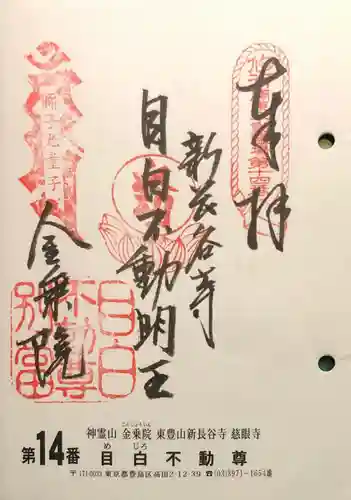 奉拝
新長谷寺
目白不動明王
金乗院
目白
不動尊
別當
神霊山 金乗院 東豊山新長谷寺 慈眼寺
こんじょういん
第14番 目白不動尊
めじろ
〒171-0033 東京都豊島区高田2-12-39 ☎(03)3971-1654番